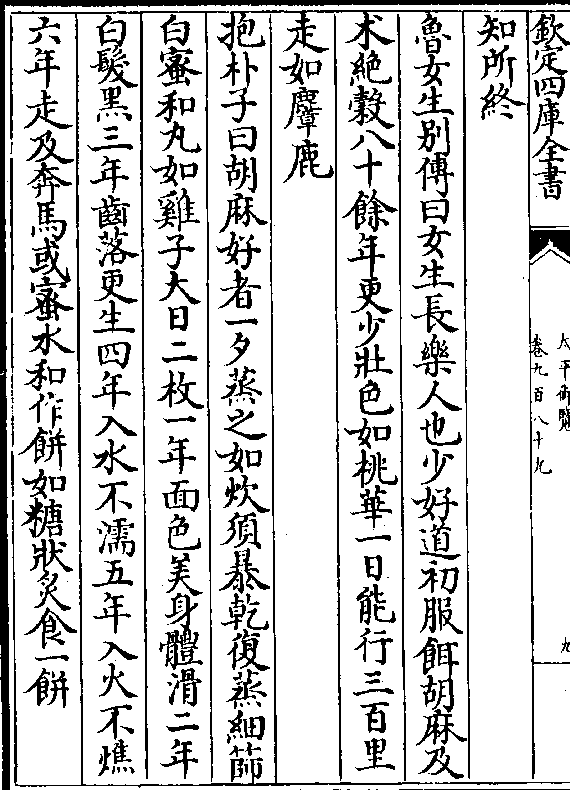 欽定四庫全書
太平御覽
卷九百八十九
九
知所終
魯女生别傳曰女生長樂人也少好道初服餌胡麻及
术絶穀八十餘年更少壯色如桃華一日能行三百里
走如麞鹿
抱朴子曰胡麻好者一夕蒸之如炊須暴乾復蒸細篩
白蜜和丸如雞子大日二枚一年面色美身體滑二年
白髮黑三年齒落更生四年入水不濡五年入火不燋
六年走及奔馬或蜜水和作餅如糖狀炙食一餅